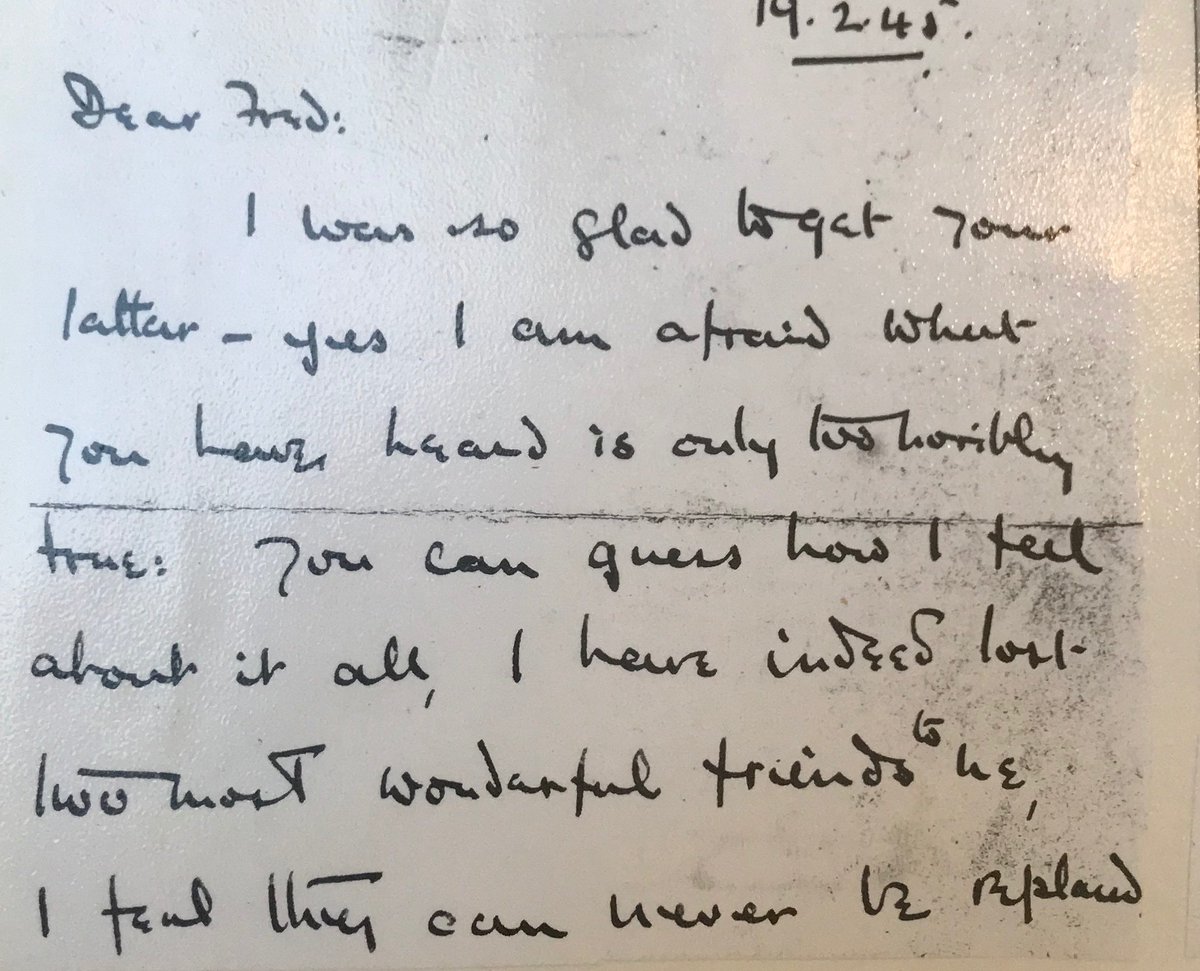 19.2.45.
Dear Fred:
I was so glad to get your
letter - yes I am afraid what
you have heard is only too horribly
true: You can guess how I feel
about it all, I have indeed lost
two most wonderful friends to me,
I feel they can never be replaced